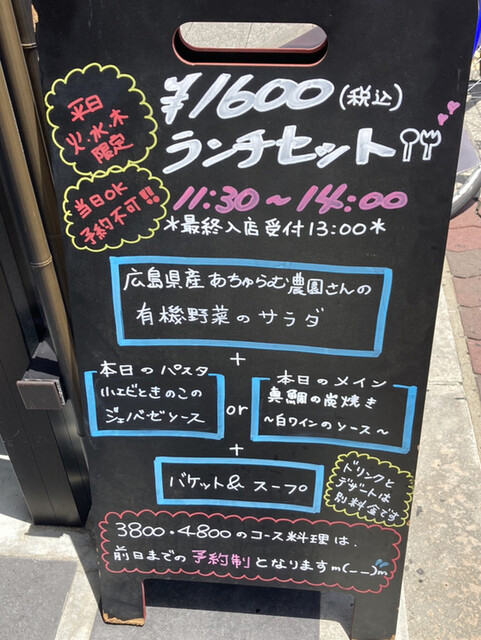 平日
火・水・木
限定
¥1600(税込)
ランチセット
当日OK
予約不可!!
11:30〜14:00
*最終入店受付13:00*
広島県産あちゅらむ農園さんの
有機野菜のサラダ
+
本日のパスタ
小エビときのこの
ジェノバゼソース
or
本日のメイン
真鯛の炭焼き
〜白ワインのソース〜
+
バケット& スープ
ドリンクと
デザートは
別料金です
3800・4800のコース料理は、
前日までの予約制となりますm(__)m